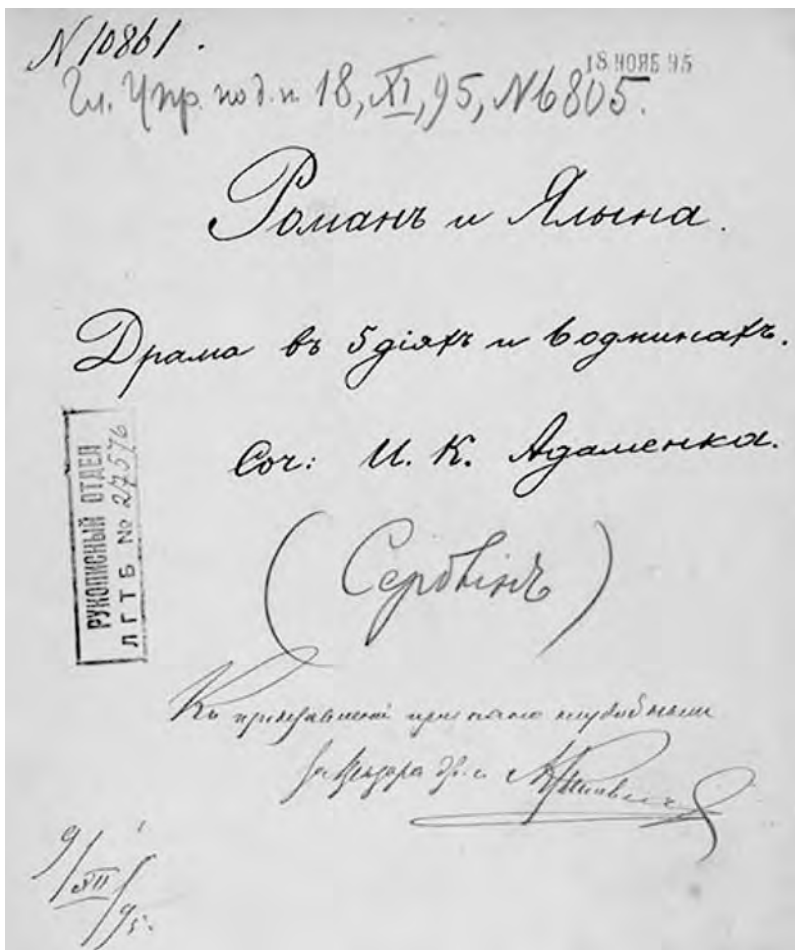 N 10861.
18 НОЯБ 95
Гл. Упр. по д. п. 18, XI, 95, № 6805.
Романъ и Ялына.
Драма въ 5 діяхъ и 6 однинахъ.
Соч: И. К. Адаменка.
(Сербінъ)
РУКОПИСНЫЙ ОТДЕЛ
ЛГТБ № 27576
Къ представленію
9/XII/95.